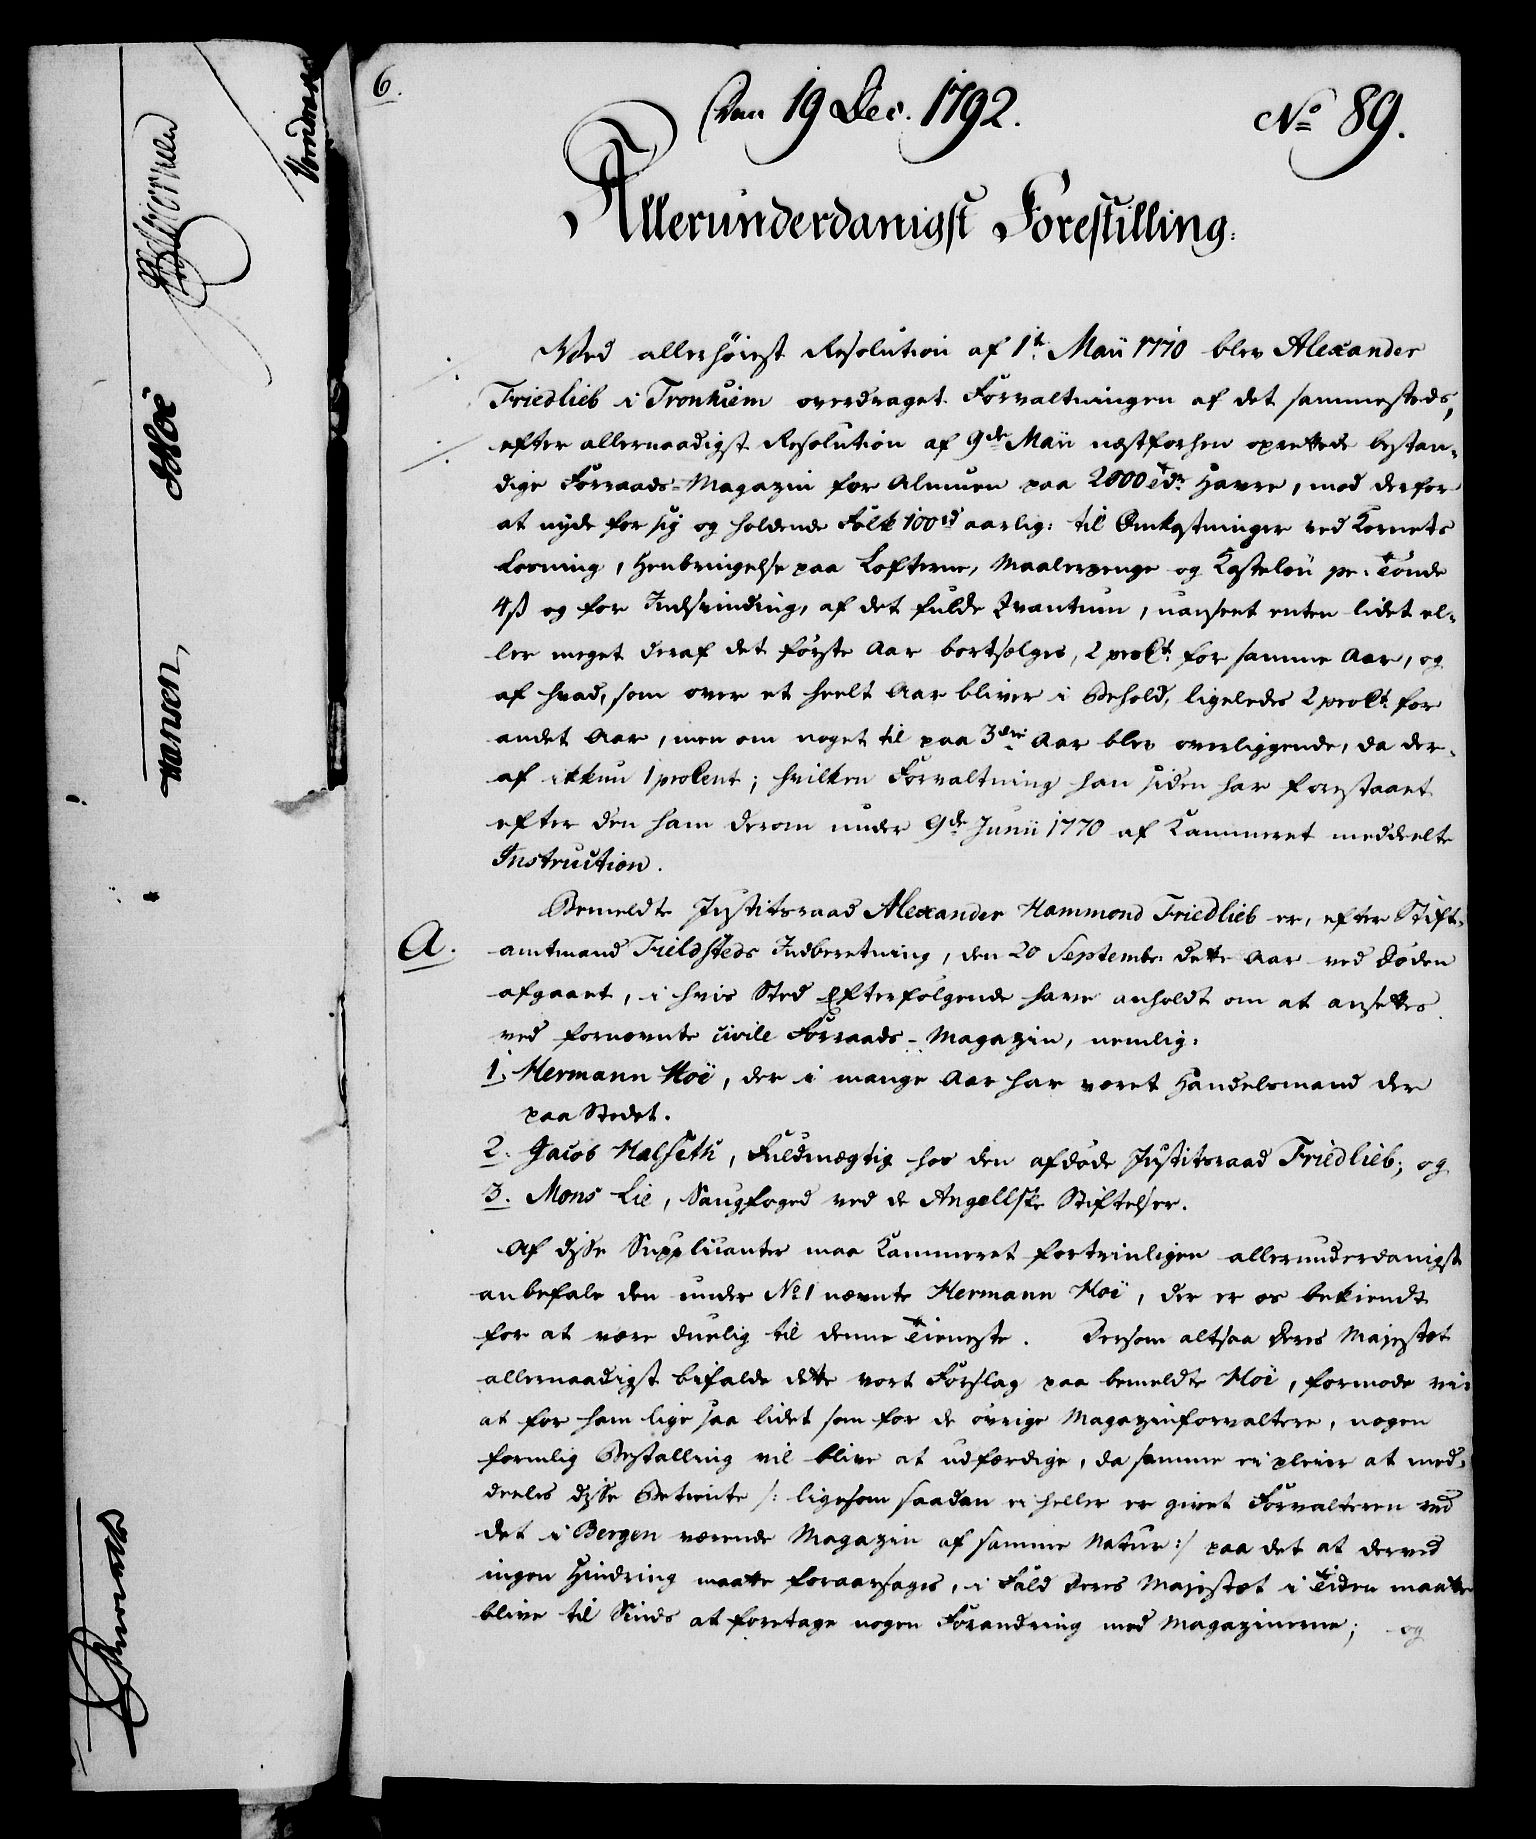 6.
Den 19 Dec. 1792.
No 89.
Allerunderdanigst Forestilling.
Ved allerhöiest Resolution af 1te Maii 1770 blev Alexander
Friedlieb i Tronhiem overdraget Forvaltningen af det sammesteds,
efter allernaadigst Resolution af 9de Maii næstforhen oprettede bestan-
dige Forraads-Magazin for Almuen paa 2000 Tdr Havre, mod derfor
at nyde for sig og holdende Folk 100 rd aarlig: til Omkostninger ved Kornets
Losning, Henbringelse paa Lofterne, Maalerpenge og Kasteløn pr. Tönde
4 ß og for Indsvinding, af det fulde Qvantum, uanseet enten lidet el-
ler meget deraf det første Aar bortsælges, 2 proCt. for samme Aar, og
af hvad, som over et heelt Aar bliver i Behold, ligeledes 2 proCt. for
andet Aar, men om noget til paa 3die Aar blev overliggende, da der-
af ikkun 1 proCent; hvilken Forvaltning han siden har forestaaet
efter den ham derom under 9de Junii 1770 af Kammeret meddeelte
Instruction.
Bemeldte Justitsraad Alexander Hammond Friedlieb er, efter Stift-
A.
amtmand Fieldsteds Indberetning, den 20 Septembr. dette Aar ved Døden
afgaaet, i hvis Sted Efterfølgende have anholdt om at ansættes
ved fornævnte civile Forraads-Magazin, nemlig:
1. Hermann Hoë, der i mange Aar har været Handelsmand der
paa Stedet.
2. Jacob Halseth, Fuldmægtig hos den afdøde Justitsraad Friedlieb; og
3. Mons Lie, Saugfoged ved de Angellske Stiftelser.
Af disse Supplicanter maa Kammeret fortrinligen allerunderdanigst
anbefale den under No 1 nævnte Hermann Hoë, der er os bekiendt
for at være duelig til denne Tieneste. Dersom altsaa Deres Majestæt
allernaadigst bifalde dette vort Forslag paa bemeldte Hoë, formode vi,
at for ham lige saa lidet som for de øvrige Magazinforvaltere, nogen
formlig Bestalling vil blive at udfærdige, da samme ei pleier at med-
deeles disse Betiente /: ligesom saadan ei heller er givet Forvalteren ved
det i Bergen værende Magazin af samme Natur :/ paa det at derved
ingen Hindring maatte foraarsages, i Fald Deres Majestæt i Tiden maatte
blive til Sinds at foretage nogen Forandring med Magazinerne; og